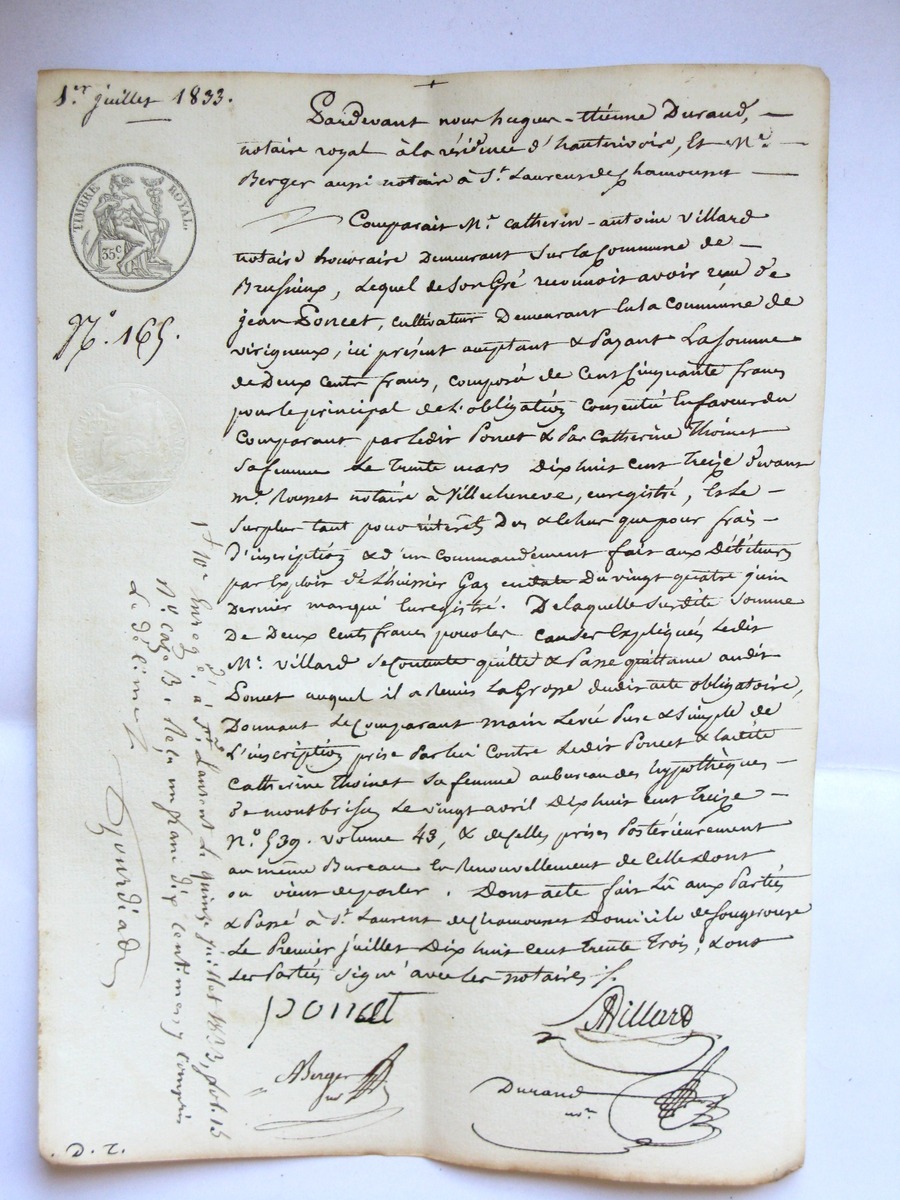 1.er juillet 1833.
TIMBRE ROYAL.
35 C
N.o 165.
Pardevant nous hugues-étienne Durand,
notaire royal à la résidence d'hauterivoire, Et M.e
Berger aussi notaire à S.t Laurent de Chamousset
Comparait M.r Catherin-antoine Villard
notaire honoraire Demeurant Sur la Commune de
Brussieux, Lequel de Son Gré reconnoit avoir reçu de
jean Poncet, cultivateur Demeurant En la commune de
virigneux, ici présent acceptant & Payant La Somme
de Deux cents francs, composée de cent Cinquante francs
pour le principal de L'obligation Consentie En faveur du
Comparant par ledit Poncet & Par Catherine Thoinet
Sa femme Le Trente mars Dix huit cent Treize devant
m.e Rousset notaire à Villecheneve, enregistré, Et Le
Surplus tant pour intérêts Dus & échus que pour frais
d'inscription & d'un Commandement fait aux Débiteurs
par Exploit de L'huissier Gay en date Du vingt quatre juin
Dernier marqué Enregistré. De laquelle Susdite Somme
De Deux cents francs pour les causes Expliqués Ledit
M.r Villard Se Contente quitte & Passe quittance audit
Poncet auquel il a Remis La Grosse dudit acte obligatoire,
Donnant Le Comparant main Levée Pure & Simple de
L'inscription prise Par lui Contre Ledit Poncet & ladite
Catherine Thoinet Sa femme au bureau des hypothèques
de montbrison Le vingt avril Dix huit cent Treize
N.o 539. volume 43, & de Celles prises Postérieurement
au même Bureau En Renouvellement de Celle Dont
on vient de parler. Dont acte fait Lû aux Parties
& Passé à S.t Laurent de Chamousset Domicile de
Le Premier juillet Dix huit cent Trente Trois; Dont
Les Parties Signé avec les notaires
poncet
Villard
Berger
Durand
n.re
Enreg.é à S.t Laurent Le quinze juillet 1833, fol. 15
R.o Case 3. Reçu un franc dix centimes y compris
Le décime
D. T.